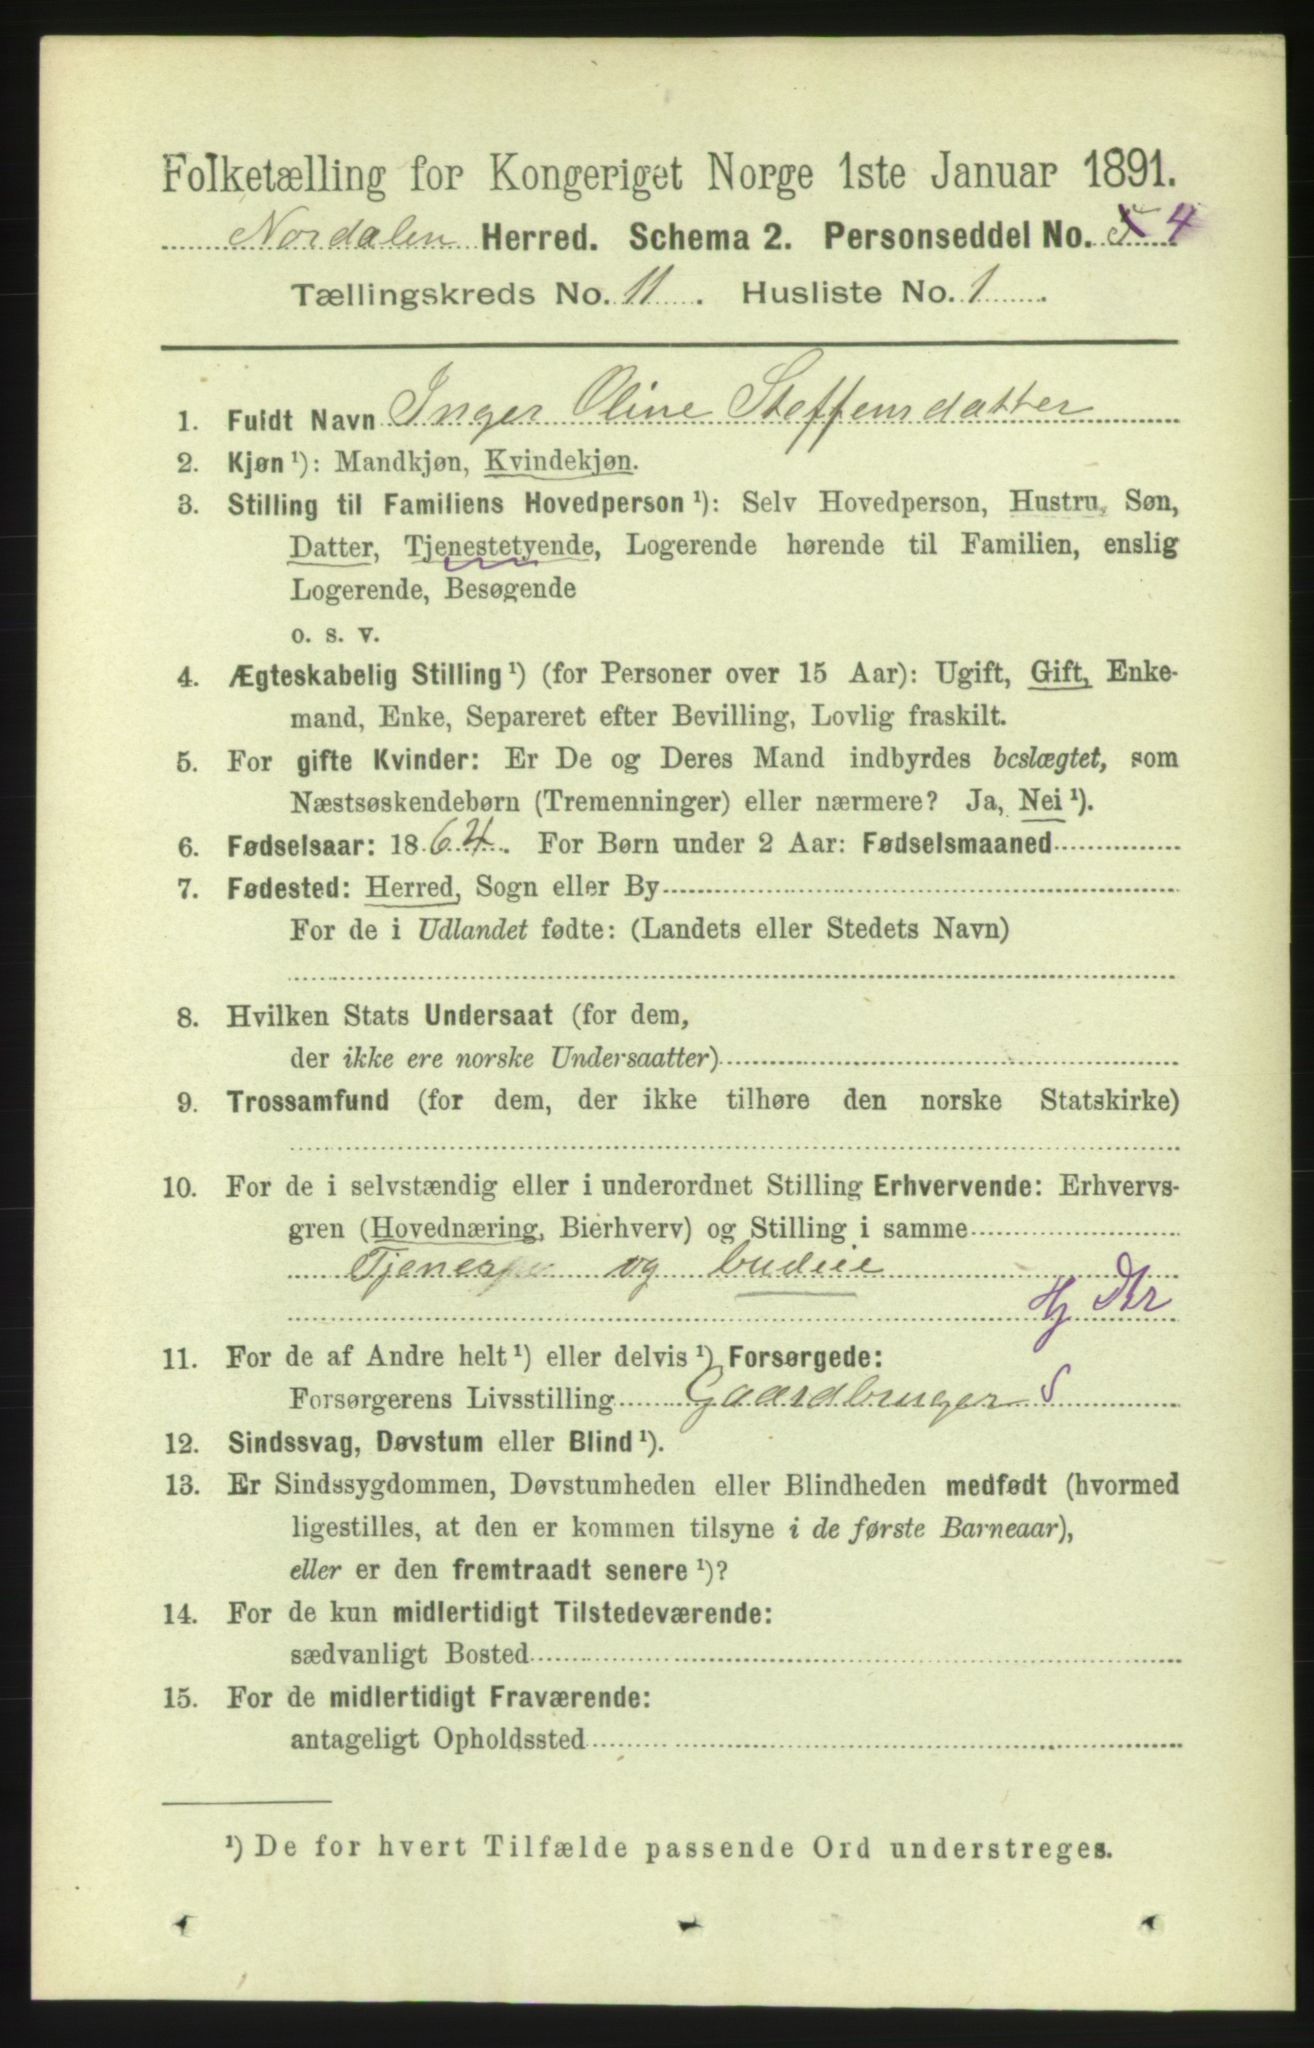 Folketælling for Kongeriget Norge 1ste Januar 1891.
Nordalen Herred. Schema 2. Personseddel No. 4
Tællingskreds No. 11. Husliste No. 1
1. Fuldt Navn Inger Oline Steffensdatter
2. Kjøn ¹): Mandkjøn, Kvindekjøn.
3. Stilling til Familiens Hovedperson ¹): Selv Hovedperson, Hustru, Søn,
Datter, Tjenestetyende, Logerende hørende til Familien, enslig
Logerende, Besøgende
o. s. v.
4. Ægteskabelig Stilling ¹) (for Personer over 15 Aar): Ugift, Gift, Enke-
mand, Enke, Separeret efter Bevilling, Lovlig fraskilt.
5. For gifte Kvinder: Er De og Deres Mand indbyrdes beslægtet, som
Næstsøskendebørn (Tremenninger) eller nærmere? Ja, Nei ¹).
6. Fødselsaar: 1864. For Børn under 2 Aar: Fødselsmaaned
7. Fødested: Herred, Sogn eller By
For de i Udlandet fødte: (Landets eller Stedets Navn)
8. Hvilken Stats Undersaat (for dem,
der ikke ere norske Undersaatter)
9. Trossamfund (for dem, der ikke tilhøre den norske Statskirke)
10. For de i selvstændig eller i underordnet Stilling Erhvervende: Erhvervs-
gren (Hovednæring, Bierhverv) og Stilling i samme
og budeie
Hj
11. For de af Andre helt ¹) eller delvis ¹) Forsørgede:
Forsørgerens Livsstilling Gaardbruger S
12. Sindssvag, Døvstum eller Blind ¹).
13. Er Sindssygdommen, Døvstumheden eller Blindheden medfødt (hvormed
ligestilles, at den er kommen tilsyne i de første Barneaar),
eller er den fremtraadt senere ¹)?
14. For de kun midlertidigt Tilstedeværende:
sædvanligt Bosted
15. For de midlertidigt Fraværende:
antageligt Opholdssted
¹) De for hvert Tilfælde passende Ord understreges.